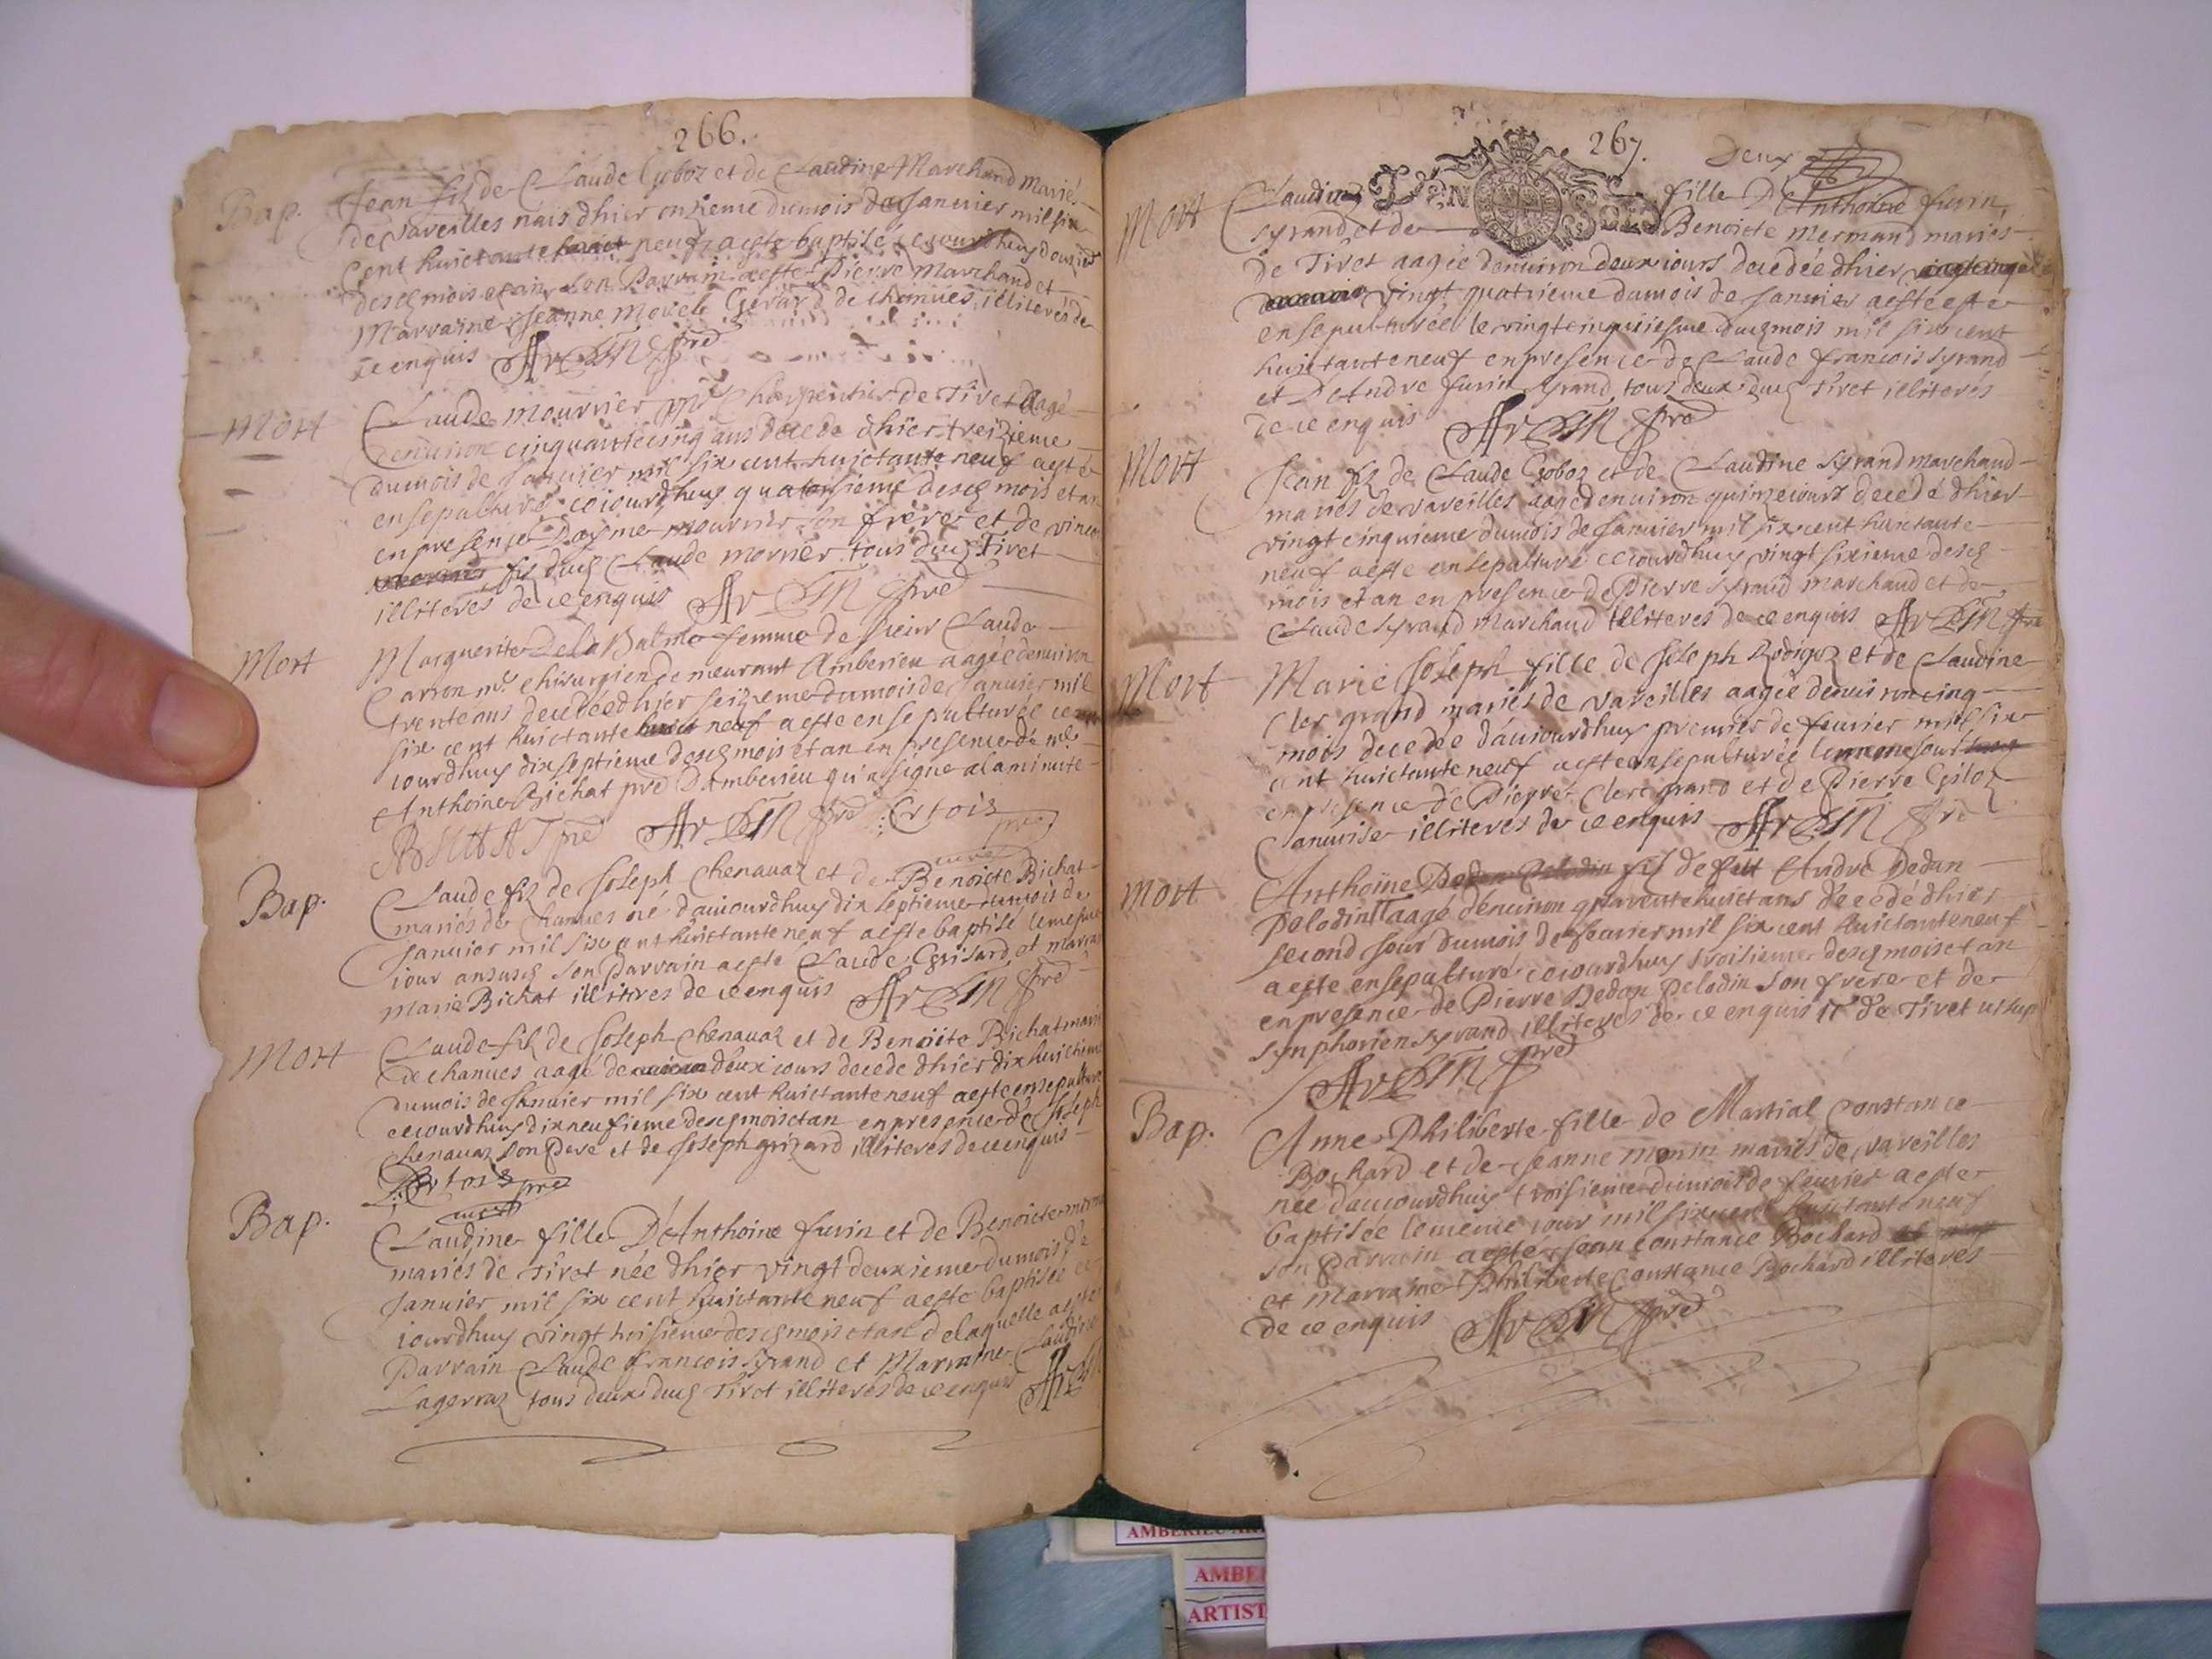 266.
Bap. Jean filz de Claude Goboz et de Claudine Marchand mariés
de vareilles nais dhier onzieme du mois de Januier mil six
cent huictante neuf aeste baptisé ce jourdhuy douzie
desq mois et an son Parrain aeste Pierre Marchand et
Marraine Jeanne Gerard de chanues illiterés de
ce enquis
Mort Claude mourrier Charpentier de Tiret aagé
denuiron cinquantecinq ans decede dhier treizieme
du mois de Januier mil six cent huictante neuf aesté
ensepulturé cejourdhuy quatorsieme desq mois et an
en presence Dayme mourrier son frere et de vincen
filz duq Claude morrier tous duq Tiret
illiterés de ce enquis
Mort Marguerite De la Balme femme de sieur Claude
Carron mre chirurgien demeurant Amberieu aagée denuiron
trente ans decedée dhier seizieme du mois de Januier mil
six cent huictante neuf aeste ensepulturée ce
jourdhuy dixseptieme desq mois et an en presence de mre
Anthoine Bichat pre DAmberieu qui a signe a la minute
BICHAT pre Ertois pre
curé
Bap. Claude filz de Joseph Chenauaz et de Benoicte Bichat
mariés de Chanues né daujourdhuy dix septieme du mois de
Januier mil six cent huictante neuf aeste baptisé le mesme
jour an susq son parrain aeste Claude Grisard et marrai
Marie Bichat illiteres de ce enquis
Mort Claude filz de Joseph Chenauaz et de Benoicte Bichat marie
de chanues aagé de deux jours decede dhier dix huictieme
du mois de Januier mil six cent huictante neuf aeste ensepulture
cejourdhuy dixneufieme desq mois et an en presence de Joseph
Chenauaz son pere et de Joseph grizard illiteres de ce enquis
Ertois pre
curé
Bap. Claudine fille DAnthoine furin et de Benoicte merma
mariés de Tiret née dhier vingtdeuxieme du mois de
Januier mil six cent huictante neuf aeste baptisée ce
jourdhuy vingt troisieme desq mois et an de laquelle aeste
Parrain Claude francois syrand et Marraine Claudine
Lagerraz tous deux duq Tiret illiterés de ce enquis
267. Deux
DEN SOLS
Mort Claudine fille DAnthoine furin
syrand et de Benoicte mermand mariés
de Tiret aagée denuiron deux jours decedée dhier
vingt quatrieme du mois de Januier aeste este
ensepulturée le vingtcinquiesme duq mois mil six cent
huictante neuf en presence de Claude francois syrand
et DAndre furin syrand tous deux duq Tiret illiterés
de ce enquis
Mort Jean filz de Claude Goboz et de Claudine syrand marchand
mariés de vareilles aagé denuiron quinze jours decedé dhier
vingtcinquieme du mois de Januier mil six cent huictante
neuf aeste ensepulturé cejourdhuy vingt sixieme desq
mois et an en presence de Pierre syrand marchand et de
Claude syrand Marchand illiteres de ce enquis
Mort Marie Joseph fille de Joseph Rodigoz et de Claudine
Clergrand mariés de vareilles aagée denuiron cinq
mois decedée daujourdhuy premier de feurier mil six
cent huictante neuf aeste ensepulturée le meme jour
en presence de Pierre Clergrand et de Pierre Giloz
illiterés de ce enquis
Mort Anthoine filz de feu Andre Dedan
Pelodin aagé denuiron quarentehuict ans decedé dhier
second jour du mois de feurier mil six cent huictante neuf
aeste ensepulturé cejourdhuy troisieme desq mois et an
en presence de Pierre Dedan pelodin son frere et de
synphorien syrand illiteres de ce enquis de Tiret
Bap. Anne Philiberte fille de Martial Constance
Bochard et de Jeanne monin mariés de vareilles
née daujourdhuy troisieme du mois de feurier aeste
baptisée le meme jour mil six cent huictante neuf
son parrain aesté Jean Constance Bochard
et marraine Philiberte Constance Bochard illiterés
de ce enquis
AMBERIEU
AMBE
ARTIST